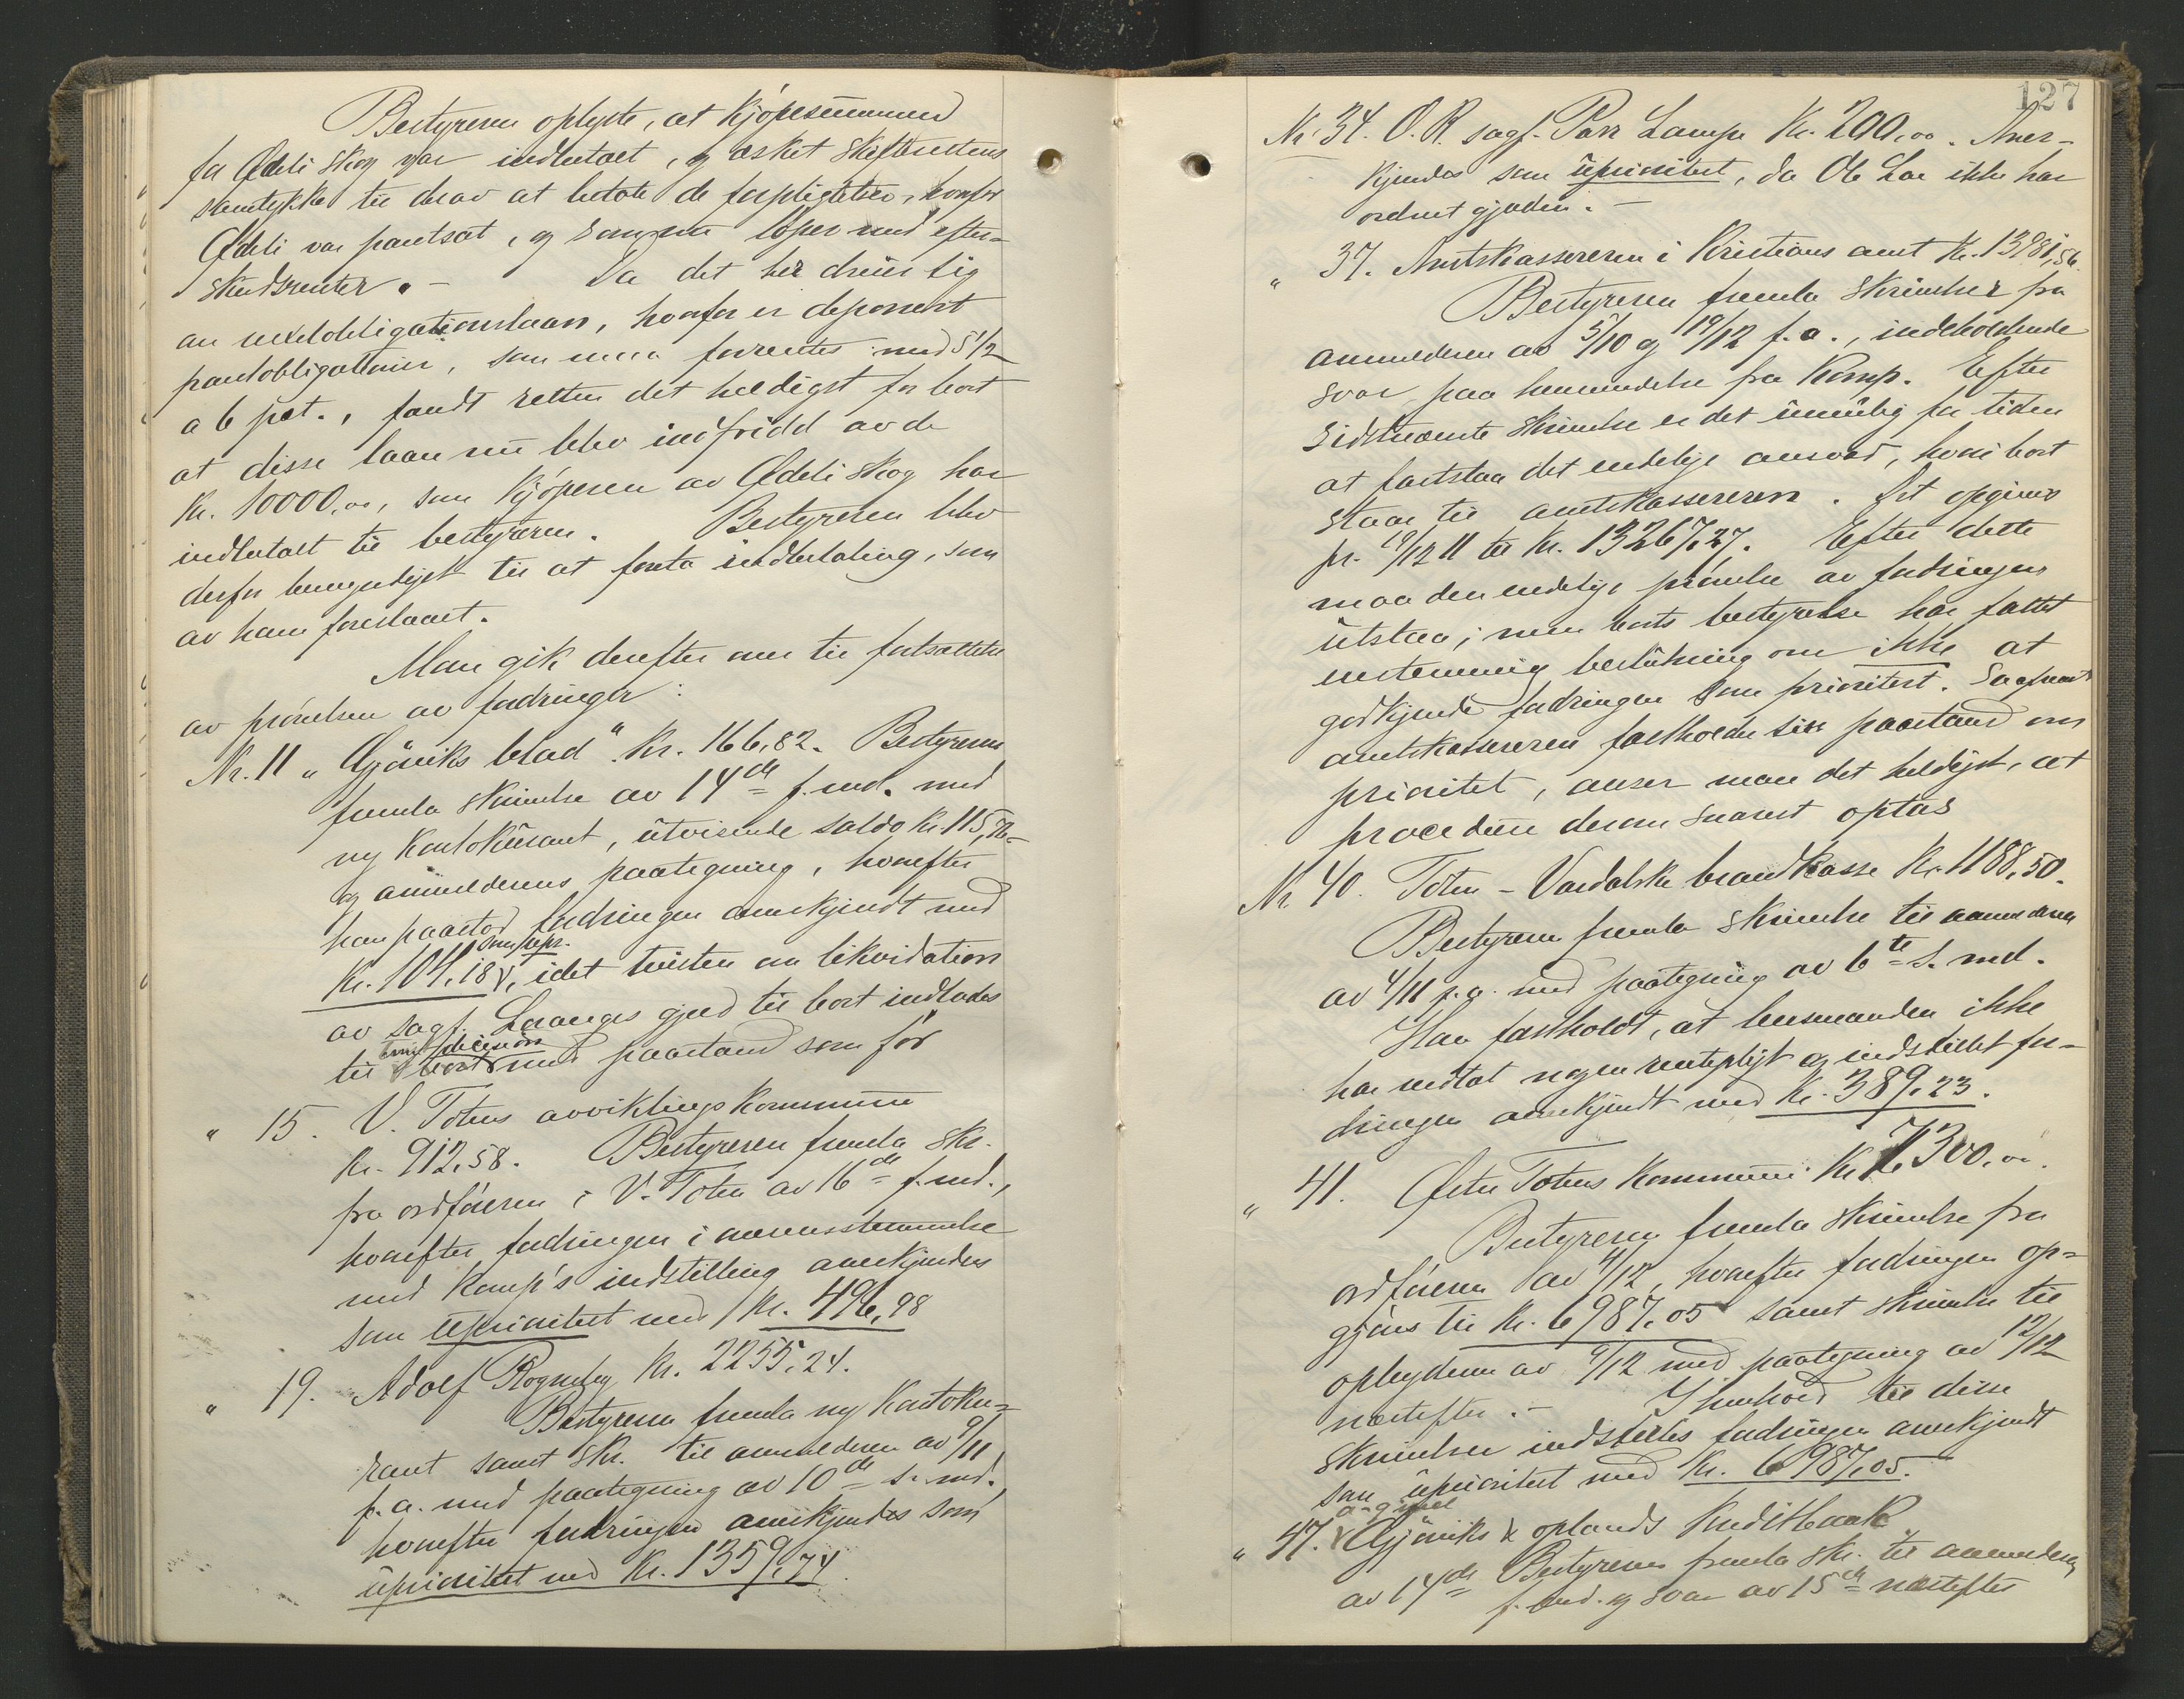 Bestyreren oplyste, at kjøpesummen
for Ødeli skog var indbetalt, og æsket skifterettens
samtykke til derav at betale de forpligtelser, hvorfor
Ødeli var pantsat, og som nu løper med efter-
skudsrenter. – Da det her dreier sig
om vexelobligationslaan, hvorfor er deponert
pantobligationer, som maa forrentes med 5 1/2
a 6 pct., fandt retten det heldigst for boet
at disse laan nu blev indfridd av de
Kr. 10000,00, som kjøperen av Ødeli skog har
indbetalt til bestyreren. Bestyreren blev
derfor bemyndiget til at foreta indbetaling, som
av ham foreslaaet.
Man gik derefter over til fortsættelse
av prøvelsen av fordringer:
Nr. 11 „Gjøviks blad“ Kr. 166,82. Bestyreren
fremla skrivelse av 14de f. md. med
ny kontokurant, utvisende saldo Kr. 115,
og anmelderens paategning, hvorefter
han paastod fordringen anerkjendt med
som upr.
Kr. 104,18, idet tvisten om likvidation
av sagf. Lavanges gjæld til boet indlades
decision
til med paastand som før
" 15. V. Totens avviklingskommune
Kr. 912,58. Bestyreren fremla skr.
fra ordføreren i V. Toten av 16de f. md.,
hvorefter fordringen i overensstemmelse
med Komp's indstilling anerkjendes
som uprioritert med Kr. 496,98
" 19. Adolf Rogneby Kr. 2255,24.
Bestyreren fremla ny kontoku-
rant samt skr. til anmelderen av 9/11
f. a. med paategning av 10de s. md.,
hvorefter fordringen anerkjendes som
uprioritert med Kr. 1359,74.
127
Nr. 34. O. R. sagf. Parr Lampe Kr. 200,00. Aner-
kjendes som uprioritert, da Ole Lae ikke har
ordnet gjælden. –
" 37. Amtskassereren i Kristians amt Kr. 13981,56.
Bestyreren fremla skrivelser fra
anmelderen av 5/10 og 19/12 f. a., indeholdende
svar paa henvendelse fra Komp. Efter
sidstnævnte skrivelse er det umulig for tiden
at fastslaa det endelige ansvar, hvori boet
staar til amtskassereren. Det opgives
pr. 19/12 11 til Kr. 13267,27. Efter dette
maa den endelige prøvelse av fordringen
utstaa; men boets bestyrelse har fattet
enstemmig beslutning om ikke at
godkjende fordringen som prioritert. Saafremt
amtskassereren fastholder sin paastand om
prioritet, anser man det heldigst, at
procedure derom snarest optas
Nr. 40. Toten – Vardalske brandkasse Kr. 1188,50.
Bestyreren fremla skrivelse til anmelderen
av 4/11 f. a. med paategning av 6te s. md.
Han fastholdt, at lensmanden ikke
har vedtat nogen rentepligt og indstillet for-
dringen anerkjendt med Kr. 389,23.
" 41. Østre Totens kommune Kr. 7300,00.
Bestyreren fremla skrivelse fra
ordføreren av 4/12, hvorefter fordringen op-
gives til Kr. 6987,05 samt skrivelse til
opbyderen av 9/12 med paategning av 12/12
næstefter. – I henhold til disse
skrivelser indstilles fordringen anerkjendt
som uprioritert med Kr. 6987,05.
" 47. Gjøviks & oplands kreditbank
Bestyreren fremla skr. til anmelderen
av 14de f. md. og svar av 15de næstefter